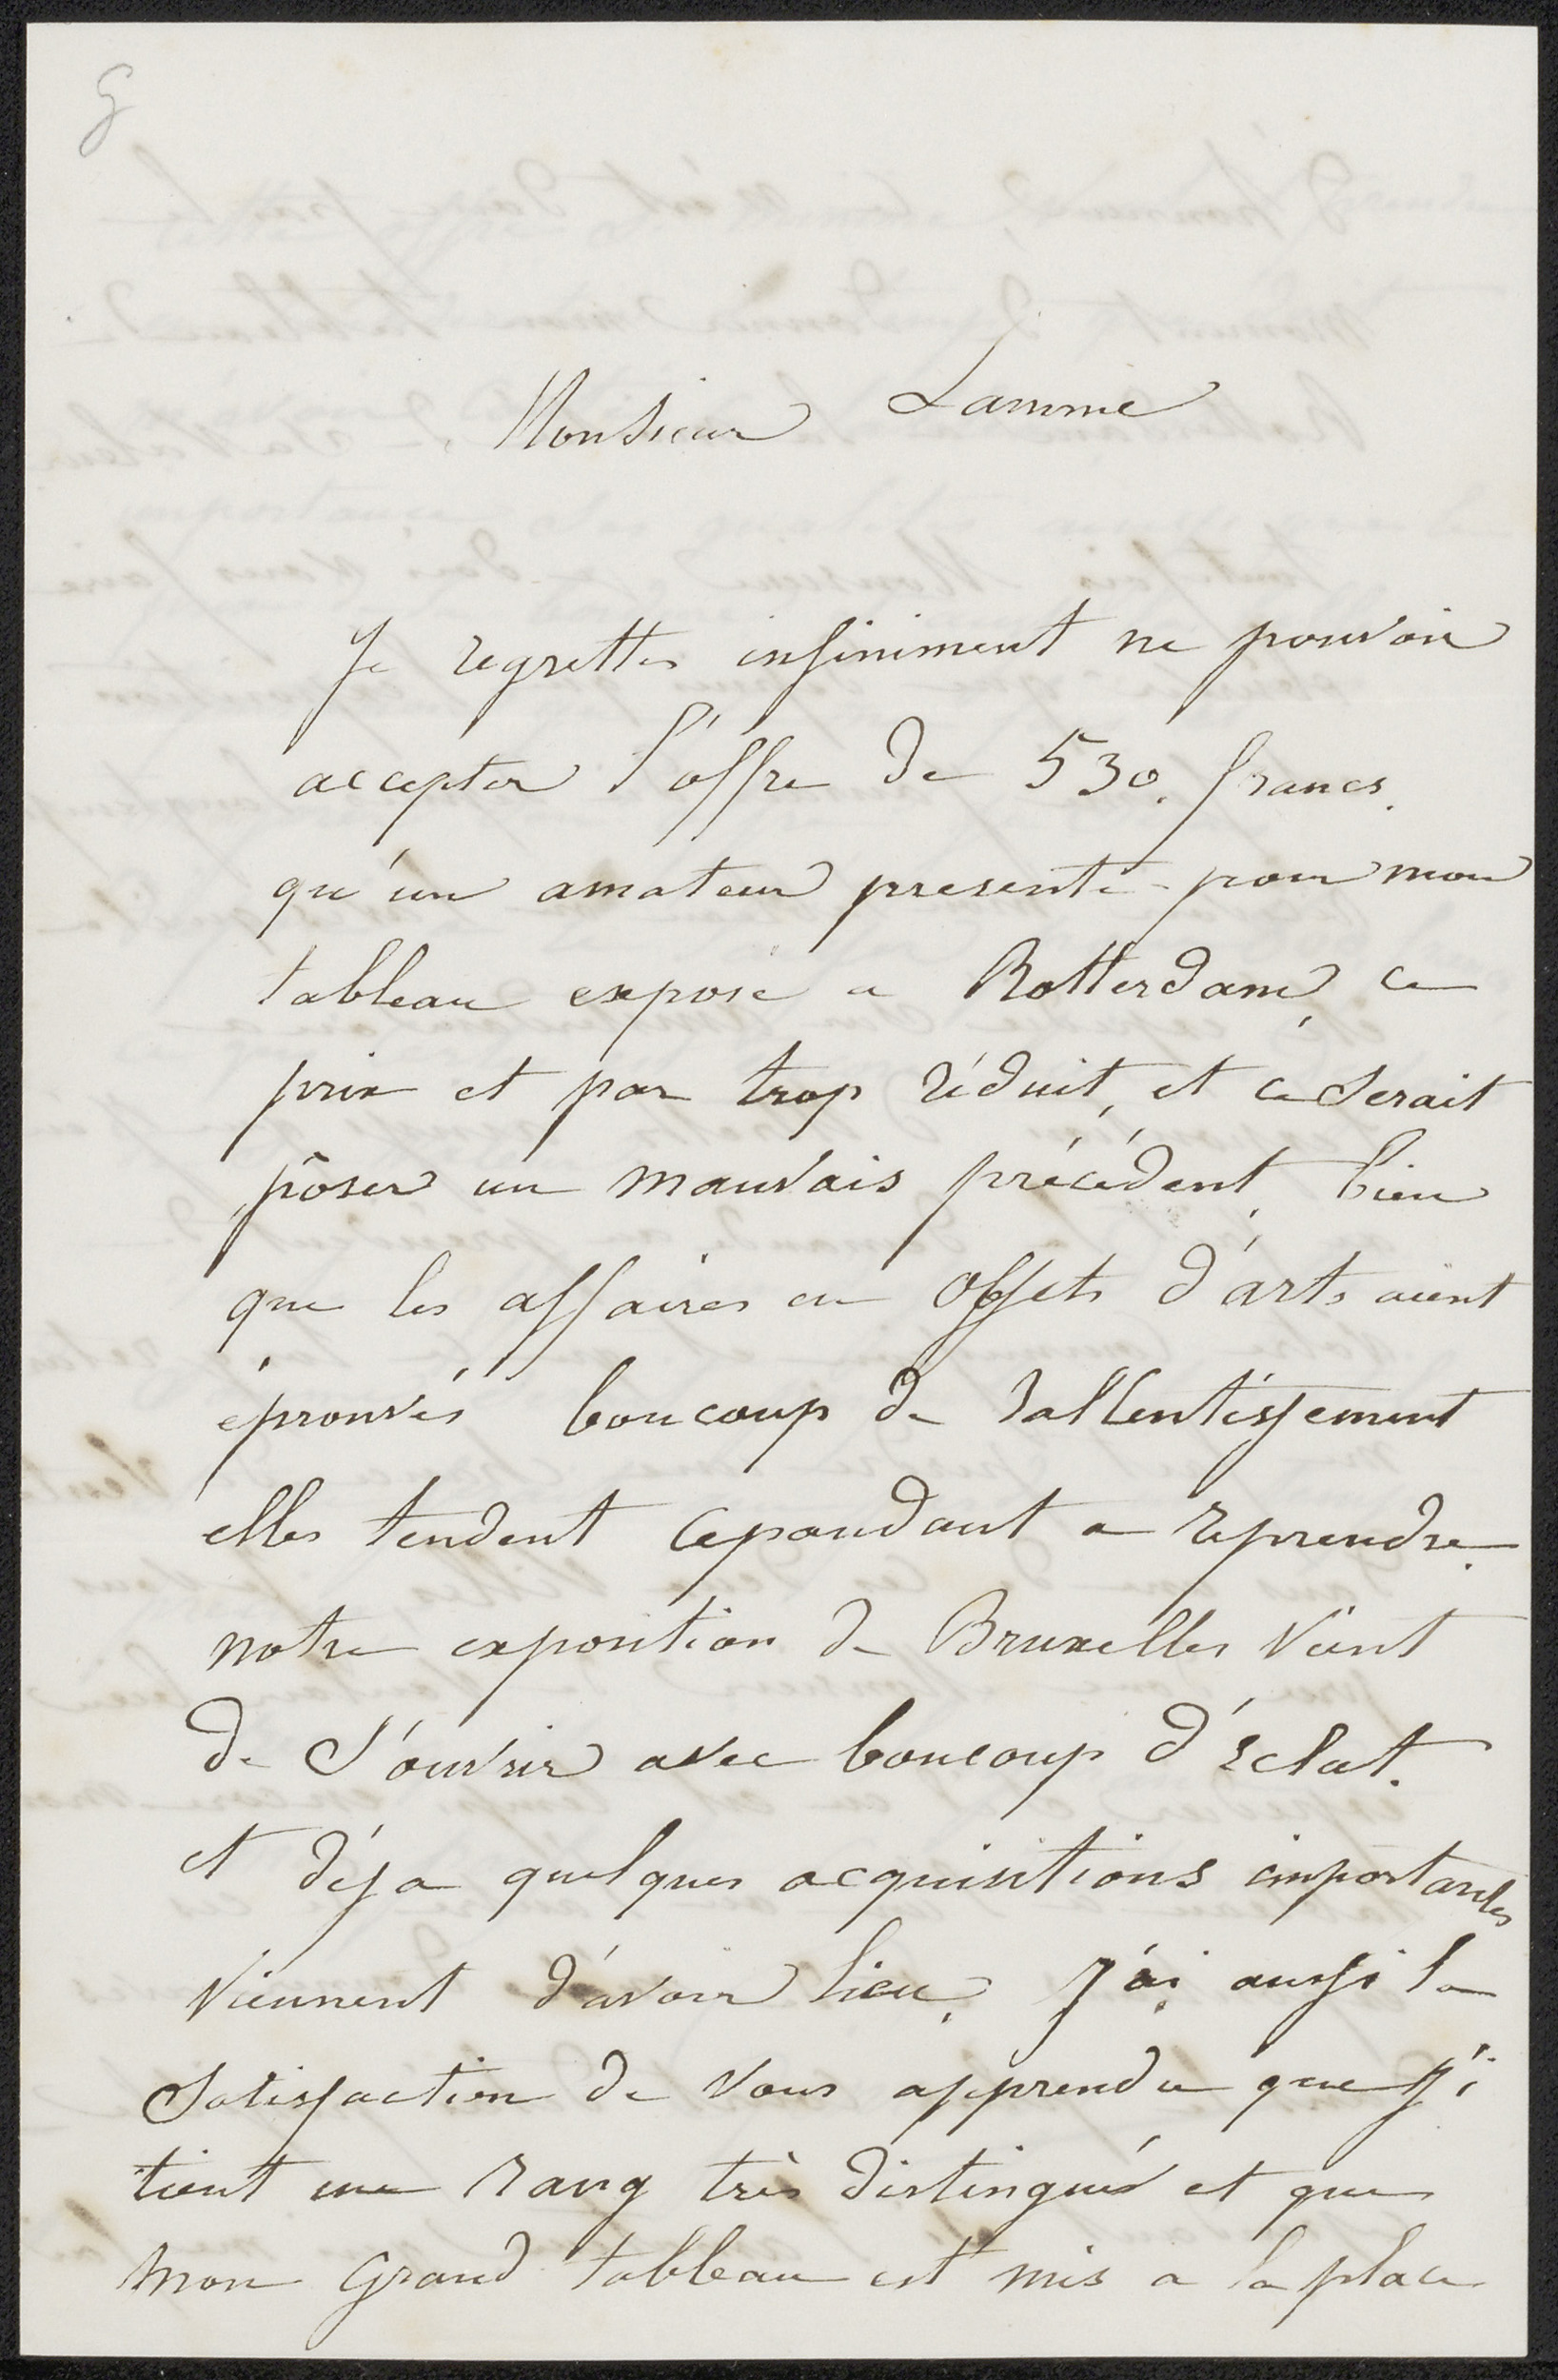 Monsieur Lamme
Je regrettes infiniment ne pouvoir
accepter l'offre de 530. francs.
qu'un amateur presente pour mon
tableau exposé a Rotterdam, ce
prix et par trop réduit, et ce serait
pôser un mauvais précédent, bien
que les affaires en offets d'arts aient
éprouvés boucoup de rallentissement
elles tendent cepandant a reprendre.
notre exposition de Bruxelles vient
de s'ouvrir avec boucoup d'éclat.
et déja quelques acquisitions importantes
viennent d'avoir lieu. J'ai aussi la
satisfaction de vous apprendre que j'i
tient un rang très distingué et que
mon grand tableau est mis a la place